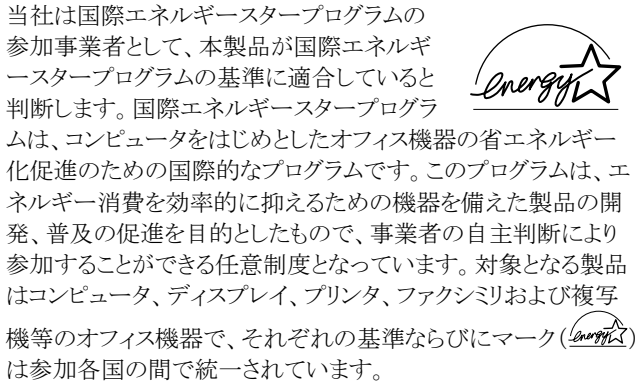 当社は国際エネルギースタープログラムの
参加事業者として、本製品が国際エネルギ
ースタープログラムの基準に適合していると
判断します。国際エネルギースタープログラ
energy
ムは、コンピュータをはじめとしたオフィス機器の省エネルギー
化促進のための国際的なプログラムです。このプログラムは、エ
ネルギー消費を効率的に抑えるための機器を備えた製品の開
発、普及の促進を目的としたもので、事業者の自主判断により
参加することができる任意制度となっています。対象となる製品
はコンピュータ、ディスプレイ、プリンタ、ファクシミリおよび複写
機等のオフィス機器で、それぞれの基準ならびにマーク(energy)
は参加各国の間で統一されています。